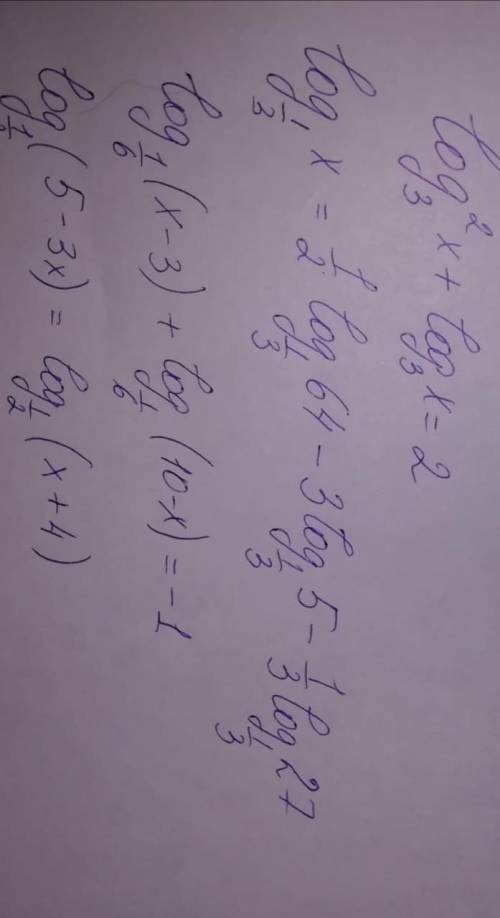 log₃² x + log₃ x = 2
log_{1/3} x = 1/2 log_{1/3} 64 - 3 log_{1/3} 5 - 1/3 log_{1/3} 27
log_{1/6} (x - 3) + log_{1/6} (10 - x) = -1
log_{1/2} (5 - 3x) = log_{1/2} (x + 4)